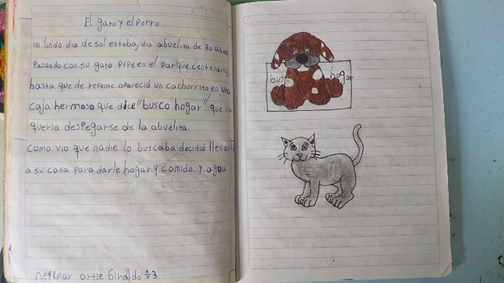 El gato y el perro
un lindo dia de sol estaba, una abuelita de 70 años
Paseado con su gato PuPe en el Parque centenario
hasta que de rePente apareció un cachorrito en una
caja hermosa que dice "busco hogar" que no
queria despegarse de la abuelita.
como vio que nadie lo buscaba decidió llevarlo
a su casa para darle hogar y comida y agua
neymar ortiz Giraldo
busco hogar